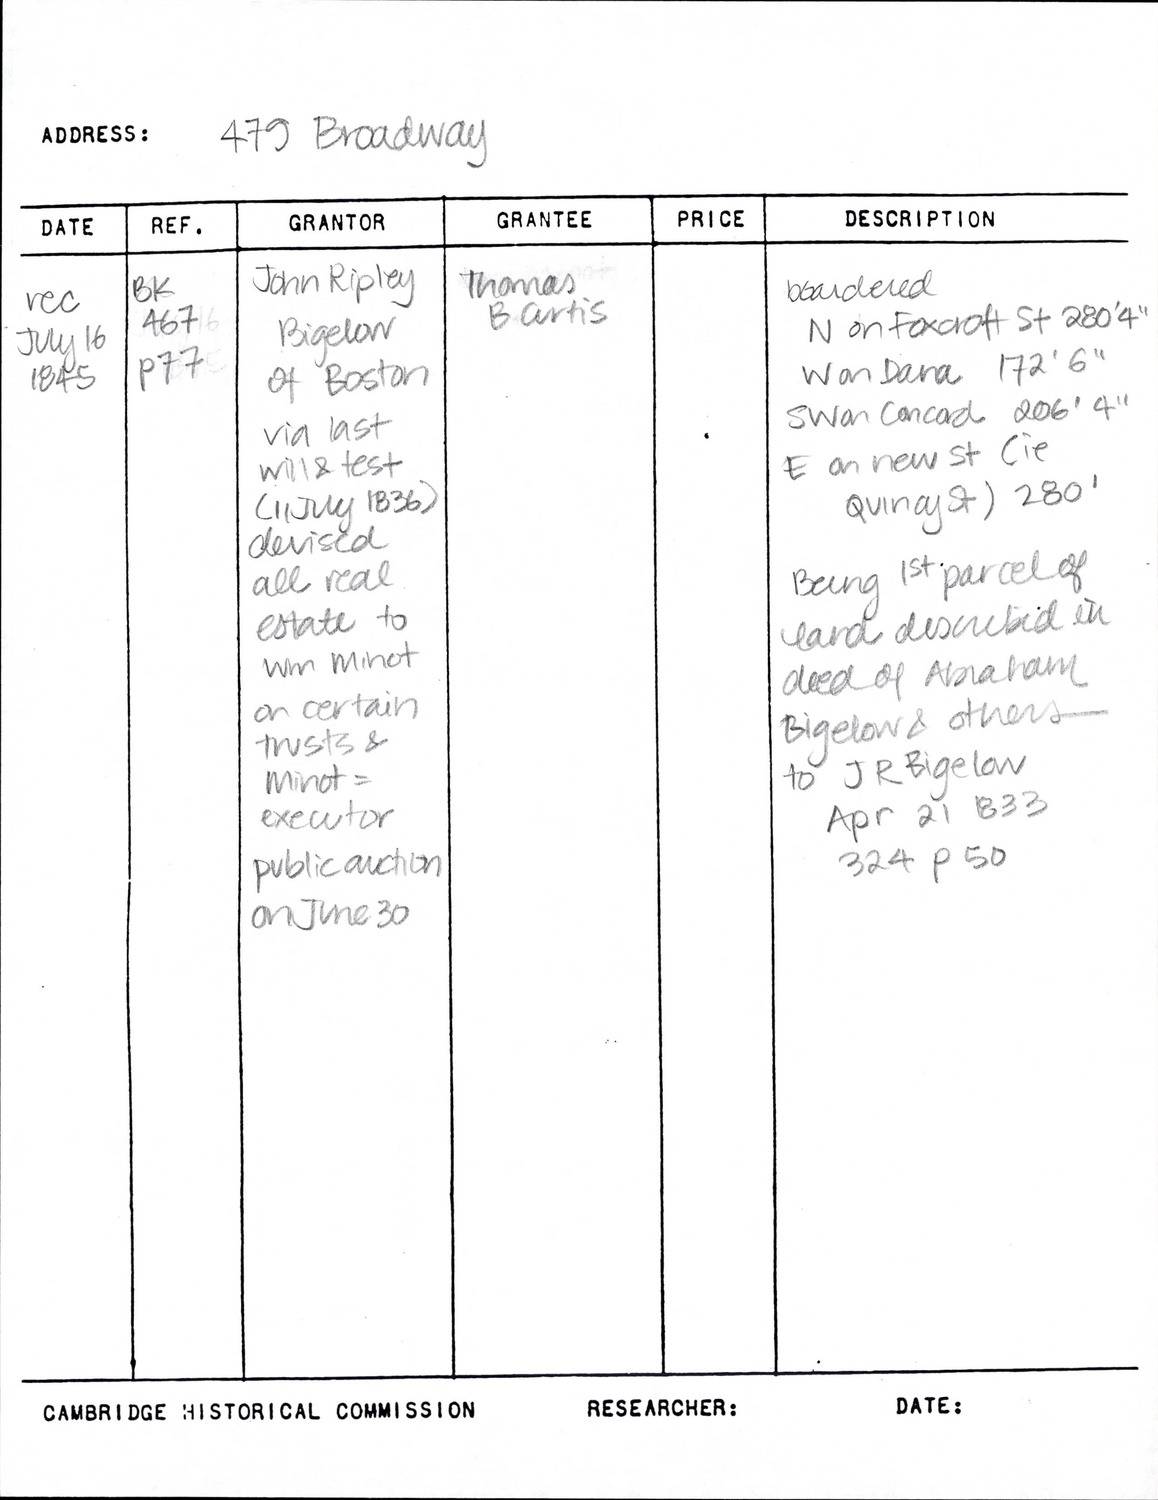 ADDRESS: 479 Broadway
DATE REF. GRANTOR GRANTEE PRICE DESCRIPTION
rec
July 16
1845
BK
467
p77
John Ripley
Bigelow
of Boston
via last
will & test
(11 July 1836)
devised
all real
estate to
Wm Minot
on certain
trusts &
Minot =
executor
public auction
on June 30
Thomas
B Curtis
boardered
N on Foxcroft St 280'4"
W on Dana 172'6"
SW on Concord 206'4"
E on new St (ie
Quincy St) 280'
Being 1st parcel of
land described in
deed of Abraham
Bigelow & others—
to J R Bigelow
Apr 21 1833
324 p 50
CAMBRIDGE HISTORICAL COMMISSION RESEARCHER: DATE: